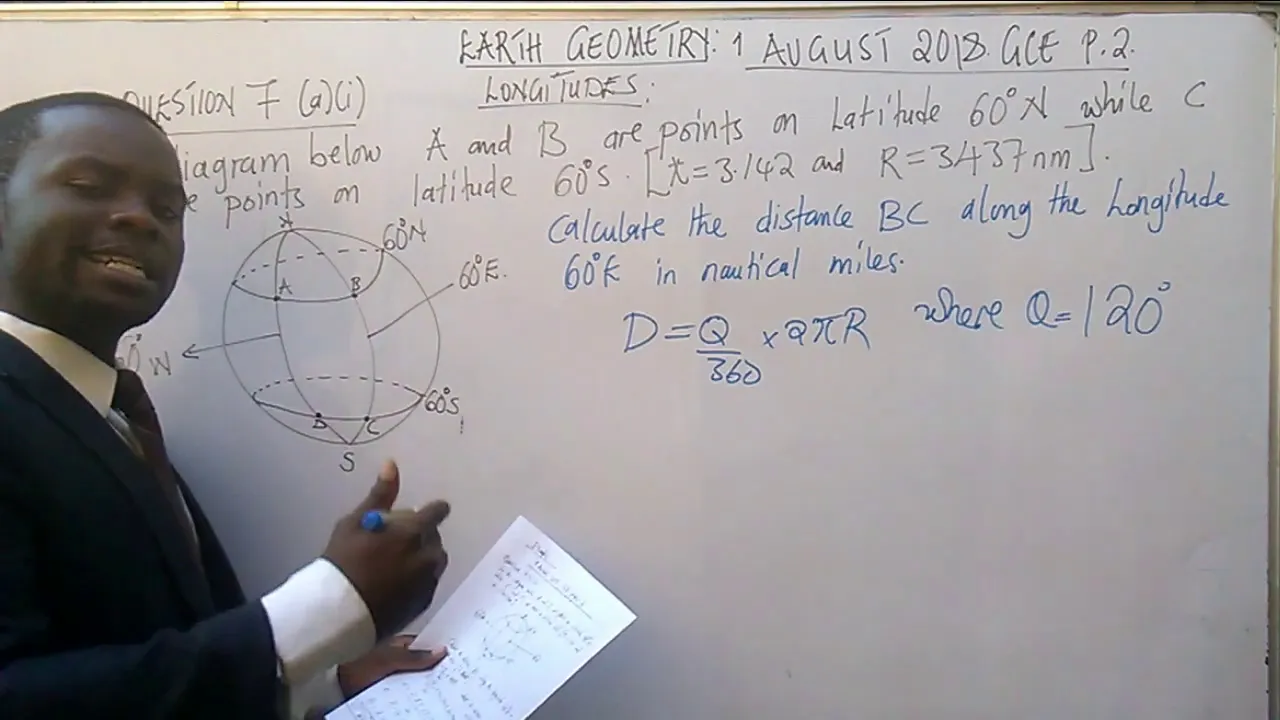 EARTH GEOMETRY: 1 AUGUST 2018. GCE P.2.
LONGITUDES:
QUESTION 7 (a)(i)
diagram below A and B are points on Latitude 60°N while C
points on latitude 60°S. [π=3.142 and R=3437nm].
Calculate the distance BC along the Longitude
60°E in nautical miles.
D = Q/360 × 2πR where Q=120°
60°N
60°E.
A
B
W
60°S
D
C
S